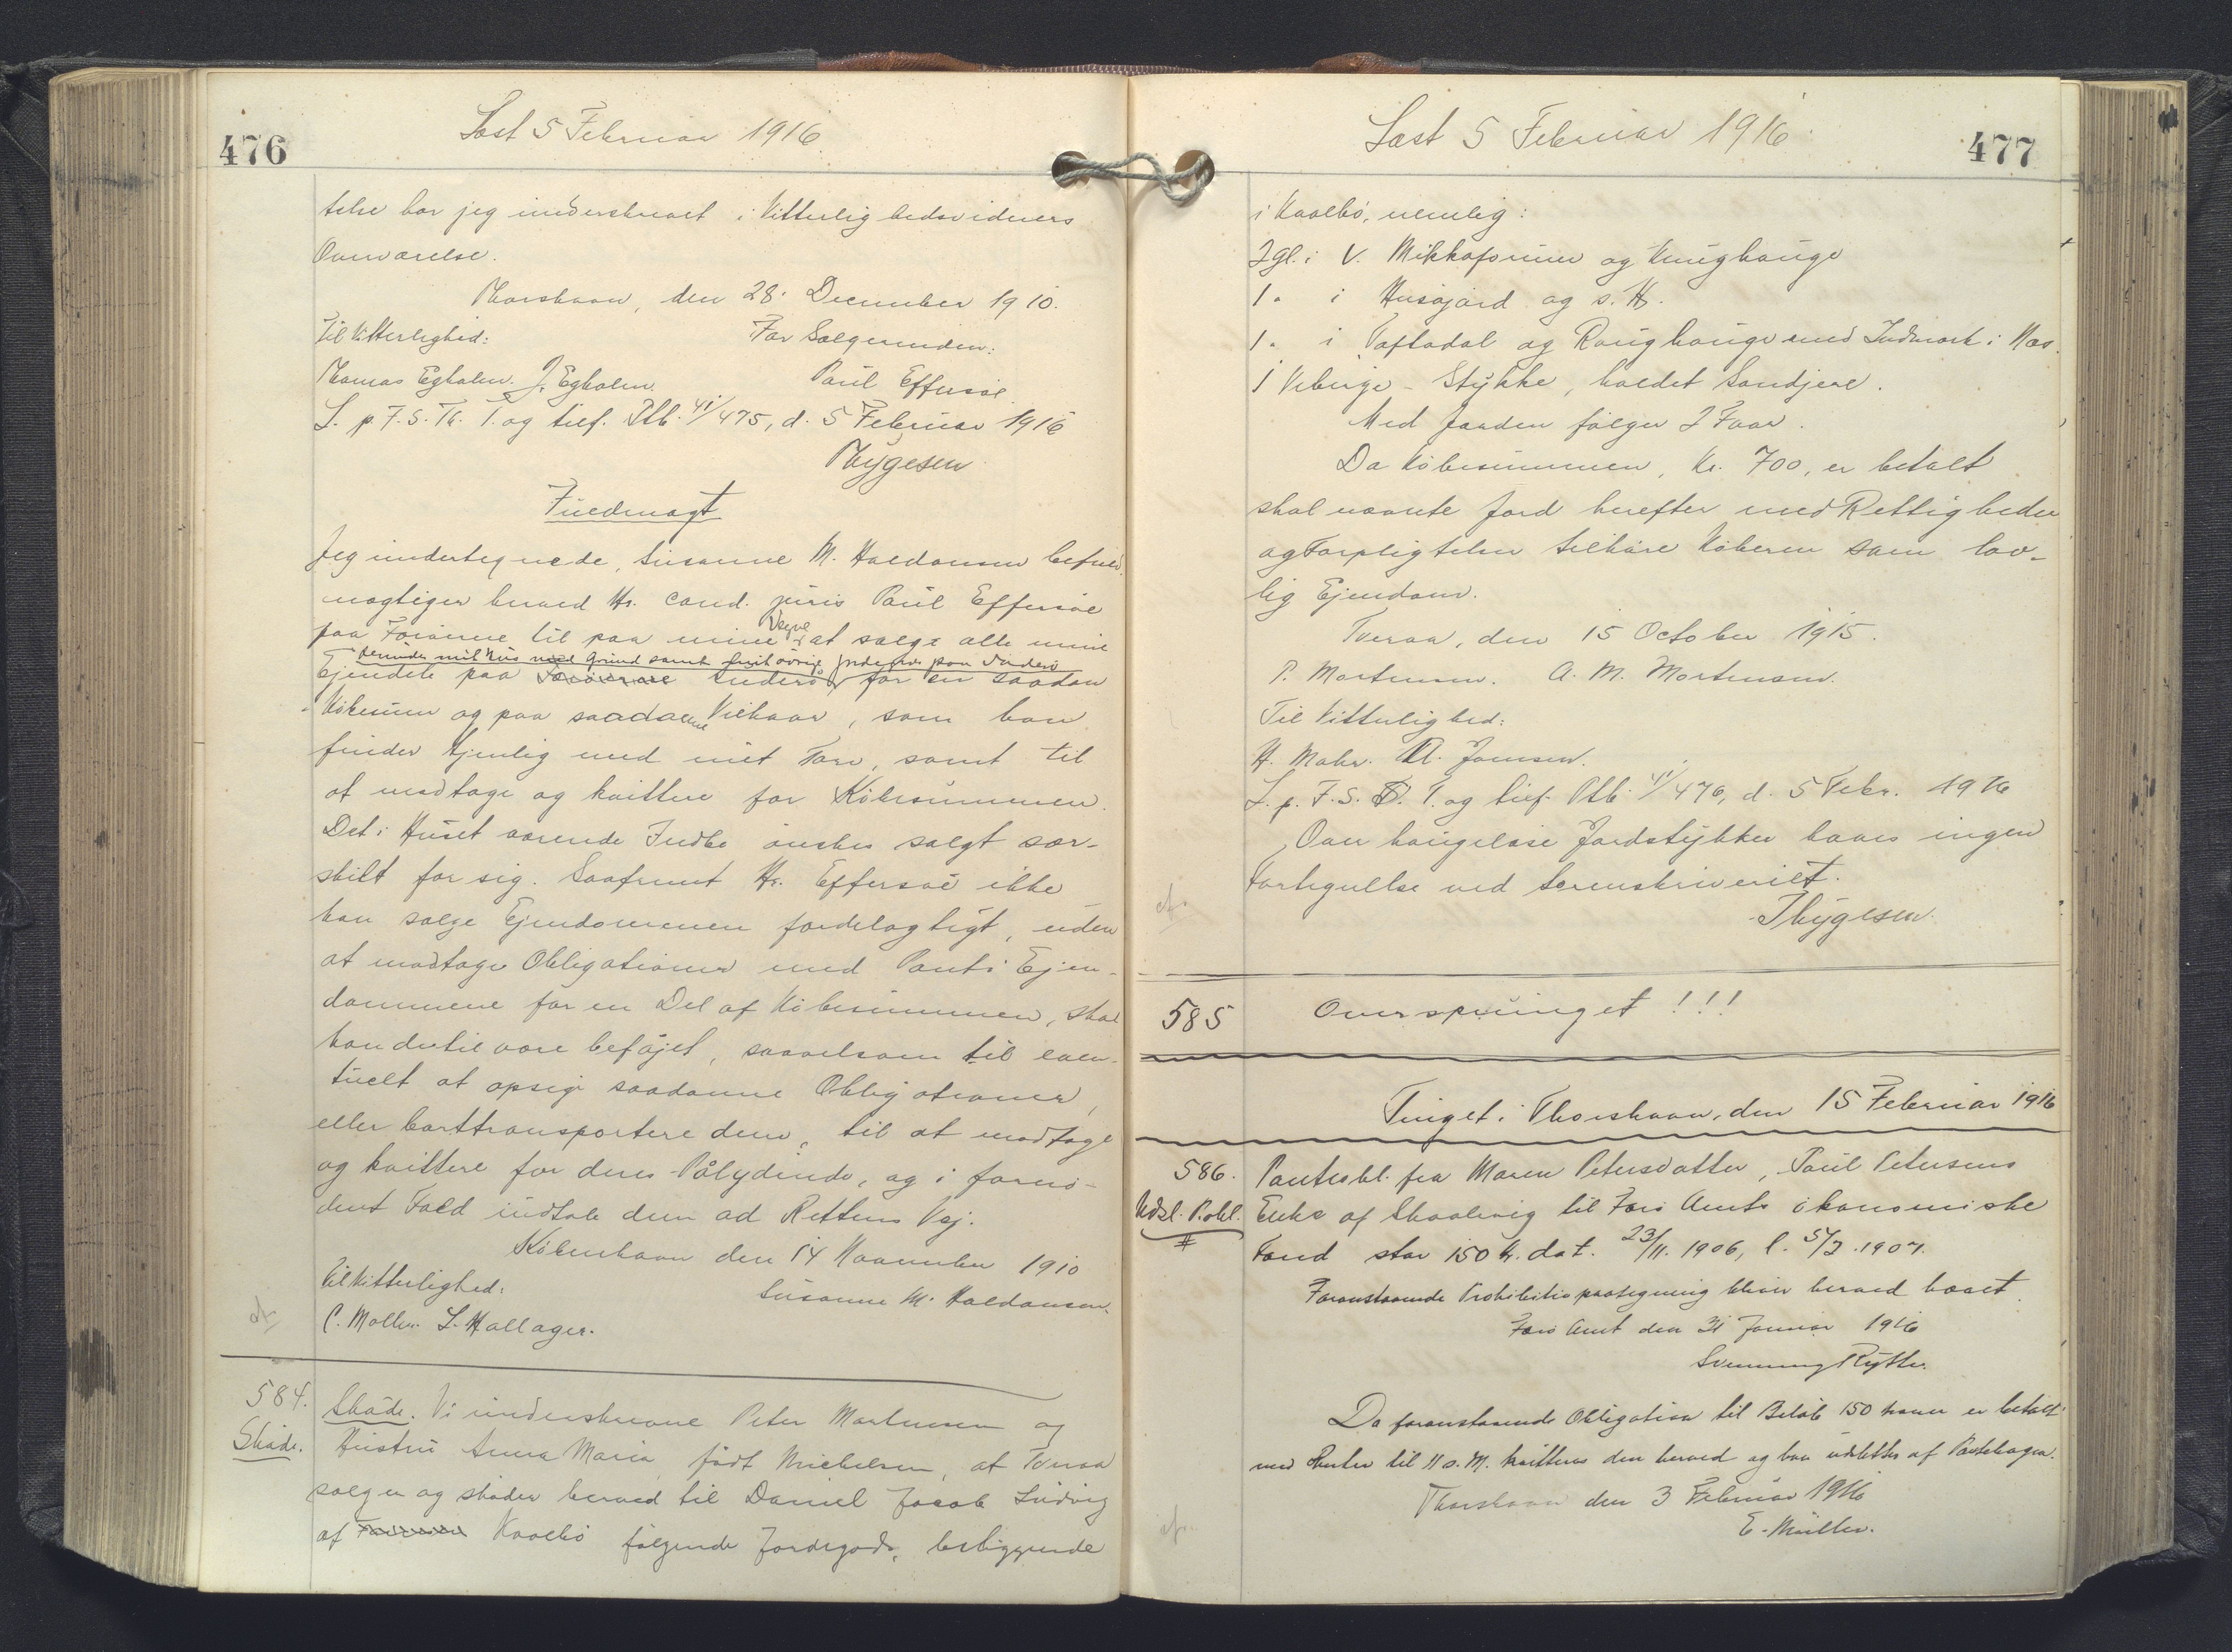 476
Læst 5 Februar 1916.
telse har jeg underskrevet i Vitterlighedsvidners
Overværelse.
Thorshavn, den 28. December 1910.
Til Vitterlighed:
For Sælgerinden:
Thomas Egholm. J. Egholm.
Paul Effersøe
L. p. F. S. Th. T. og tilf. Ptb. 41/475, d. 5 Februar 1916
Thygesen
Fuldmagt
Jeg undertegnede, Susanne M. Haldansen befuld-
mægtiger herved Hr. cand. juris Paul Effersøe
paa Færøerne til paa mine Vegne at sælge alle mine
derunder mit Hus med Grund samt mit øvrige Jordegods paa Suderø
Ejendele paa Færøerne Suderø for en saadan
Købesum og paa saadanne Vilkaar, som han
finder tjenlig med mit Tarv, samt til
at modtage og kvittere for Købesummen.
Det i Huset værende Indbo ønskes solgt sær-
skilt for sig. Saafremt Hr. Effersøe ikke
kan sælge Ejendommene fordelagtigt, uden
at modtage Obligationer med Pant i Ejen-
dommene for en Del af Købesummen, skal
han dertil være beføjet, saavelsom til even-
tuelt at opsige saadanne Obligationer,
eller borttransportere dem, til at modtage
og kvittere for deres Pålydende, og i fornø-
dent Fald indtale dem ad Rettens Vej.
København den 14 November 1910
Til Vitterlighed:
Susanne M. Haldansen.
C. Møller. L. Hallager.
584.
Skøde.
Skøde. Vi underskrevne Peter Mortensen og
Hustru Anna Maria, født Michelsen, af Tveraa
sælger og skøder herved til Daniel Jacob Ludvig
af Kvalbø følgende Jordegods, beliggende
477
Læst 5 Februar 1916.
i Kvalbø, nemlig:
2 gl. i V. Mikkaforum og
1 " i Husagard og s. H.
1 " i Toftadal og med Indmark i Næs.
1 Stykke, kaldet Sandjere.
Med Jorden følger 2 Faar.
Da Købesummen, Kr. 700, er betalt
skal nævnte Jord herefter med Rettigheder
og Forpligtelser tilhøre Køberen som lov-
lig Ejendom.
Tveraa, den 15 October 1915.
P. Mortensen. A. M. Mortensen.
Til Vitterlighed:
H. Mohr. A. Joensen.
L. p. F. S. T. og tilf. Ptb. 41/476, d. 5 Febr. 1916
Over haugeløse Jordstykker haves ingen
Fortegnelse ved Sorenskriveriet.
Thygesen.
585
Oversprunget!!!
Tinget i Thorshavn, den 15 Februar 1916
586.
Udsl. P.obl.
#
Panteobl. fra Maren Petersdatter, Paul Petersens
Enke af Skaalevig til Færø Amts økonomiske
Fond stor 150 Kr. dat. 23/11. 1906, l. 5/2. 1907.
Foranstaaende Prohibitivpaategning bliver herved hævet.
Færø Amt den 31 Januar 1916
Svenning Rytter.
Da foranstaaende Obligation til Beløb 150 Kroner er betalt
med Renter til 11 d. M. kvitteres den herved og kan udslettes af Pantebogen.
Thorshavn den 3 Februar 1916
E. Müller.